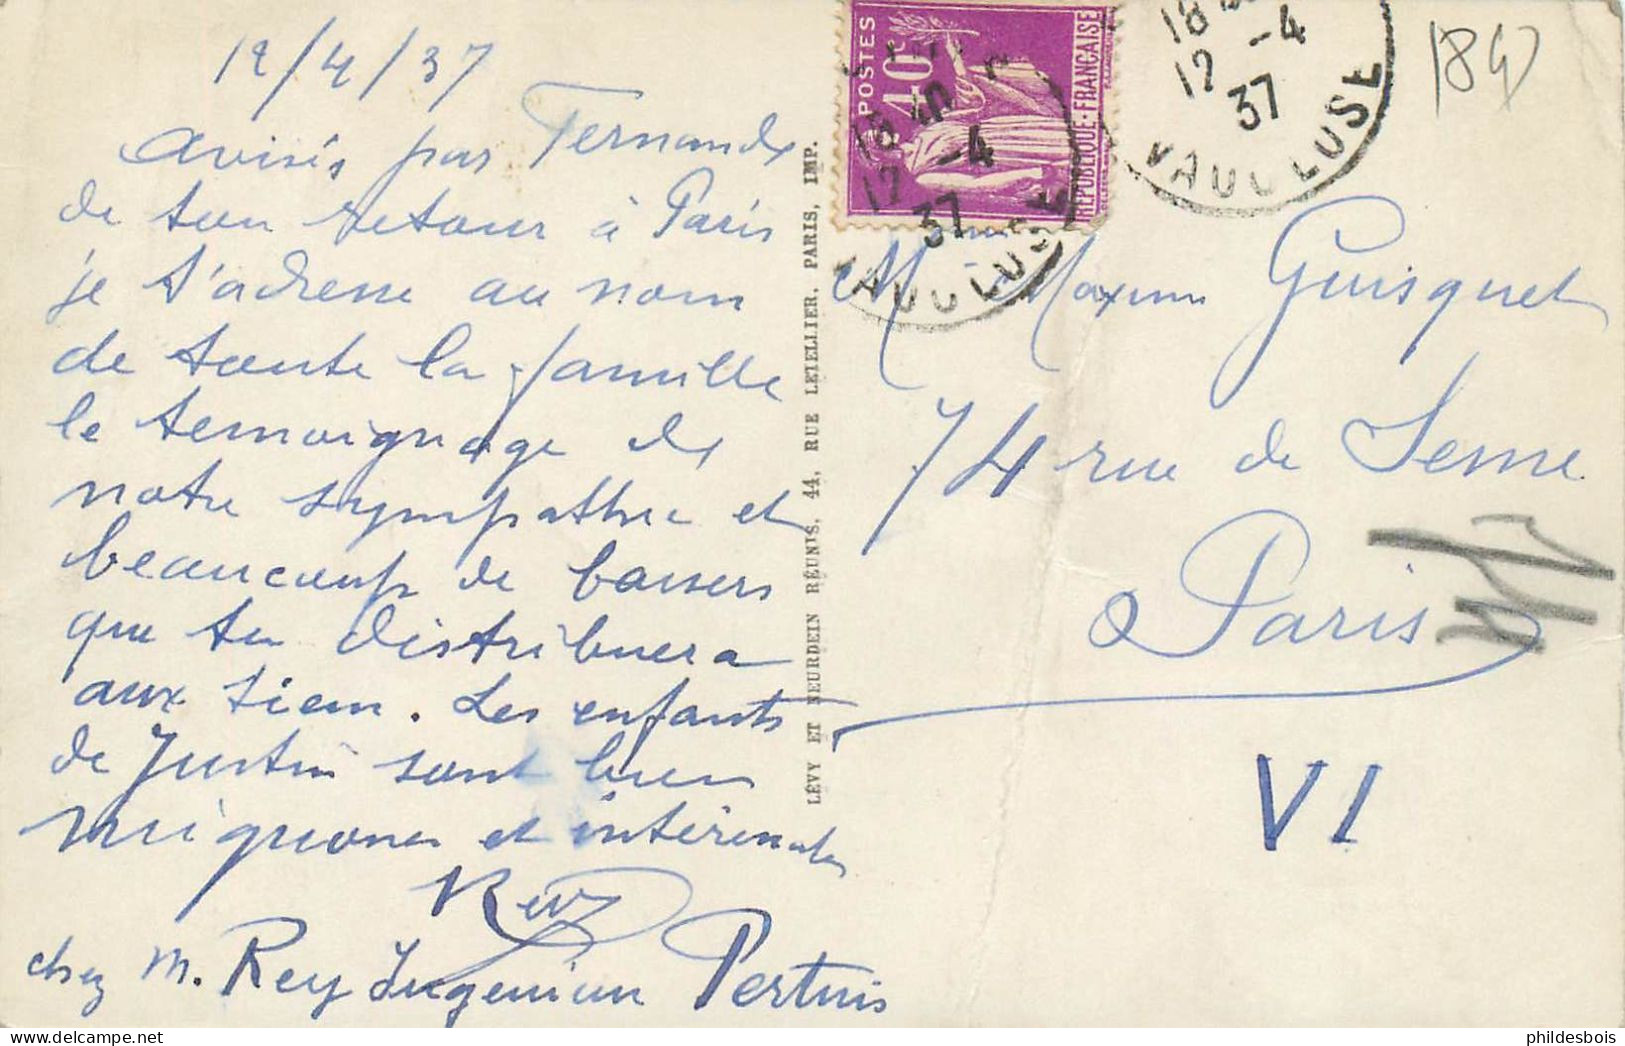 12/4/37
Avisés par Fernande
de ton retour à Paris
je t'adresse au nom
de toute la famille
le temoignage de
notre sympathie et
beaucoup de baisers
que tu distribuera
aux tiens. Les enfants
de Justin sont bien
mignones et intéressantes
Rey
chez M. Rey Ingenieur Pertuis
LÉVY ET NEURDEIN RÉUNIS, 44, RUE LETELLIER, PARIS, IMP.
POSTES
40c
REPUBLIQUE-FRANÇAISE
18 40
12 -4
37
VAUCLUSE
18
12 -4
37
VAUCLUSE
184
M Maxime Guisquet
74 rue de Seine
à Paris
VI
phildesbois